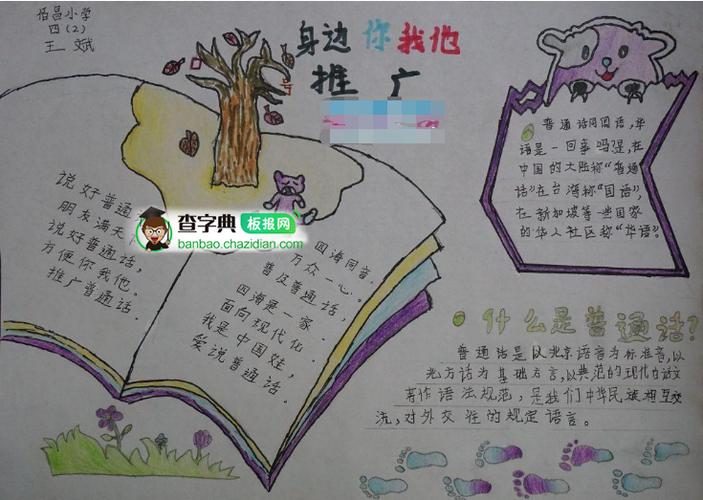 佰昌小学
四(2)
王 斌
身边你我他
推 广
普通话同国语,华
语是一回事吗?是,在
中国的大陆称“普通
话”在台湾称“国语”,
在新加坡等一些国家
的华人社区称“华语”。
说好普通
朋友满天
说好普通话,
方便你我他。
推广普通话,
查字典 板报网
banbao.chazidian.com
四海同音,
万众一心。
普及普通话,
四海是一家.
面向现代化.
我是中国娃,
爱说普通话。
什么是普通话?
普通话是以北京语音为标准音,以
北方话为基础方言,以典范的现代白话文
著作语法规范,是我们中华民族相互交
流,对外交往的规定语言。